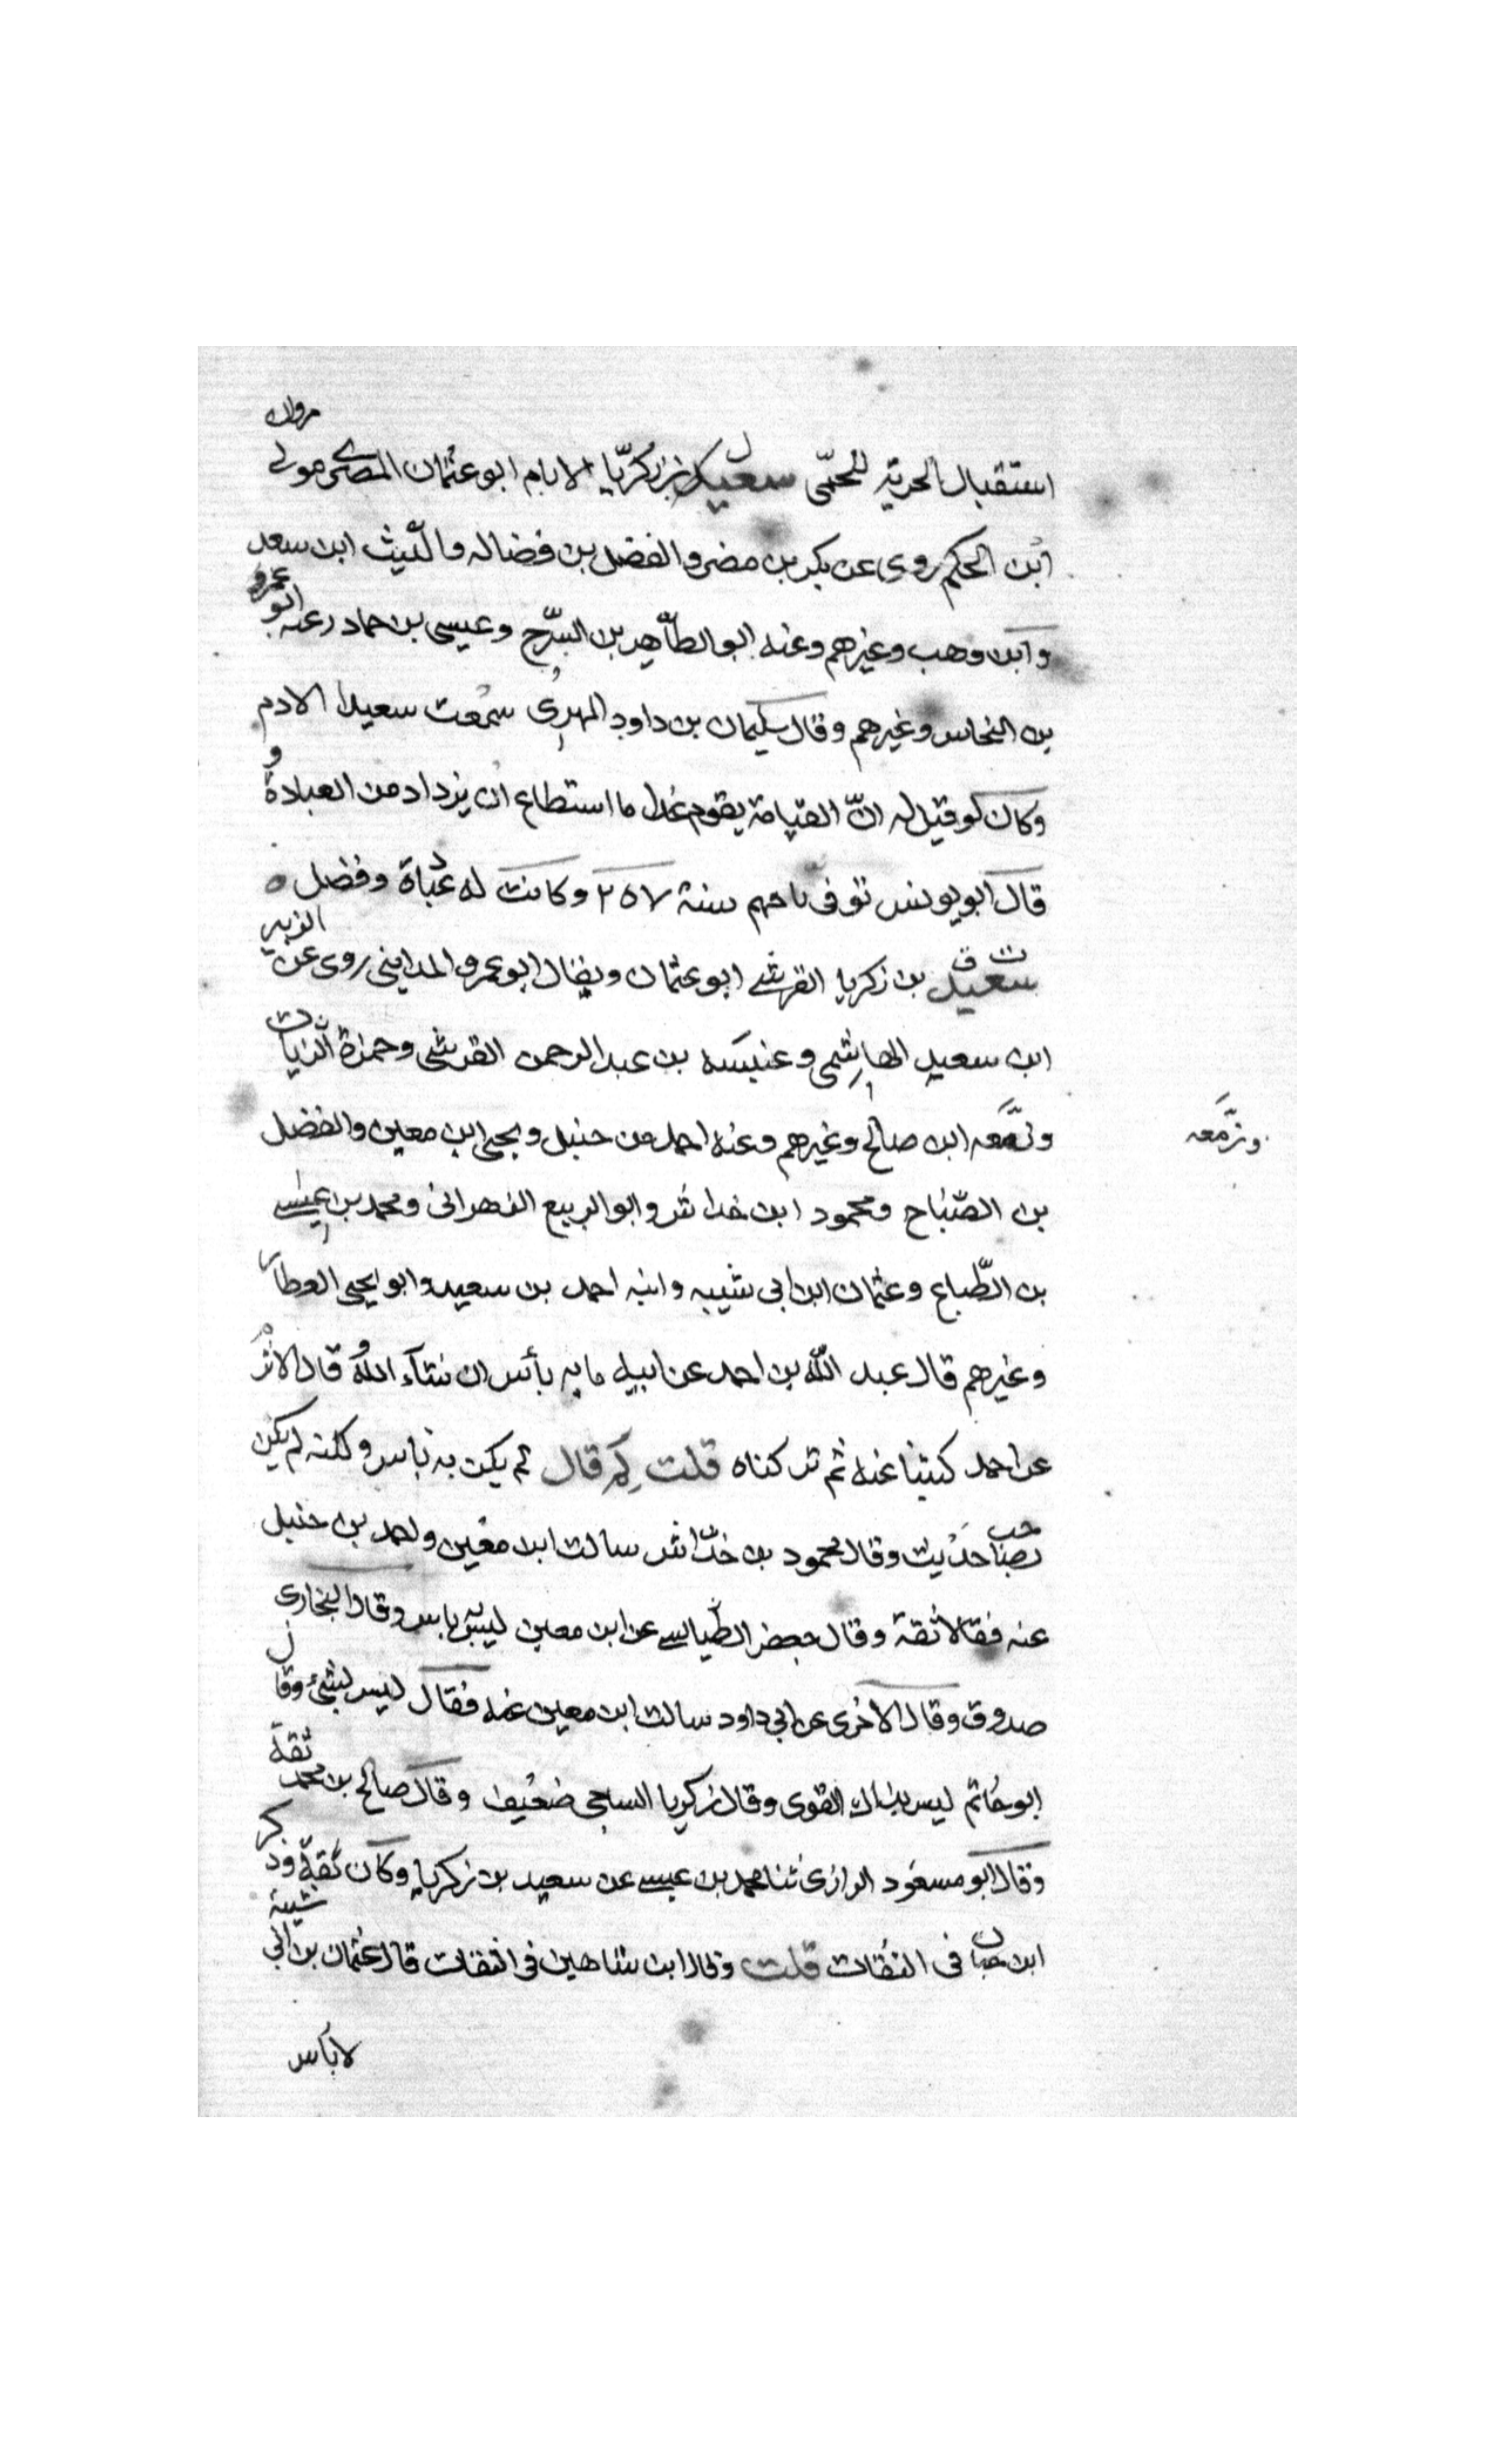 استقبال الحرية للحمّى سعيد بن زكريّا الادم ابو عثمان المصرى مولى مروان
ابن الحكم روى عن بكر بن مضر والفضل بن فضاله والليث ابن سعد
وابن وهب وغيرهم وعنه ابو الطاهر بن السرّح وعيسى بن حماد زغبه ابو عمرو
بن النحاس وغيرهم وقال سليمان بن داود المهرى سمعت سعيدا الادم
وكان لو قيل له انّ القيامة يقوم غدا ما استطاع ان يزداد من العبادة و
قال ابو يونس توفى باخميم سنة ٢٥٧ وكانت له عبادة وفضل ه
ت ق
سعيد بن زكريا القرشى ابو عثمان ويقال ابو عمرو المداينى روى عن الزبير
ابن سعيد الهاشمى وعنبسه بن عبد الرحمن القرشى وحمزة الزيات
وزمعه ابن صالح وغيرهم وعنه احمد من حنبل ويحيى ابن معين والفضل
وزمّعه
بن الصّباح ومحمود ابن خداش وابو الربيع الزهرانى ومحمد بن عيسى
بن الطّباع وعثمان ابن ابى شيبه وابنه احمد بن سعيد وابو يحيى العطار
وغيرهم قال عبد اللّه بن احمد عن ابيه ما به بأس ان شآء اللّه وقال الاثرم
عن احمد كتبنا عنه ثم تركناه قلت لِمَ قال لم يكن به باس ولكنه لم يكن
بصاحب حديث وقال محمود بن خدّاش سالت ابن معين واحمد بن حنبل
عنه فقالا ثقة وقال جعفر الطيالسى عن ابن معين ليس به باس وقال البخارى
صدوق وقال الاخرى عن ابى داود سالت ابن معين عنه فقال ليس بشئ وقال
ابو حاتم ليس بذاك القوى وقال زكريا الساجى ضعيف وقال صالح بن محمد ثقة
وقال ابو مسعود الرازى ثنا محمد بن عيسى عن سعيد بن زكريا وكان ثقة وذكر
ابن حبان فى الثقات قلت وقال ابن شاهين فى الثقات قال عثمان بن ابى شيبة
لا باس